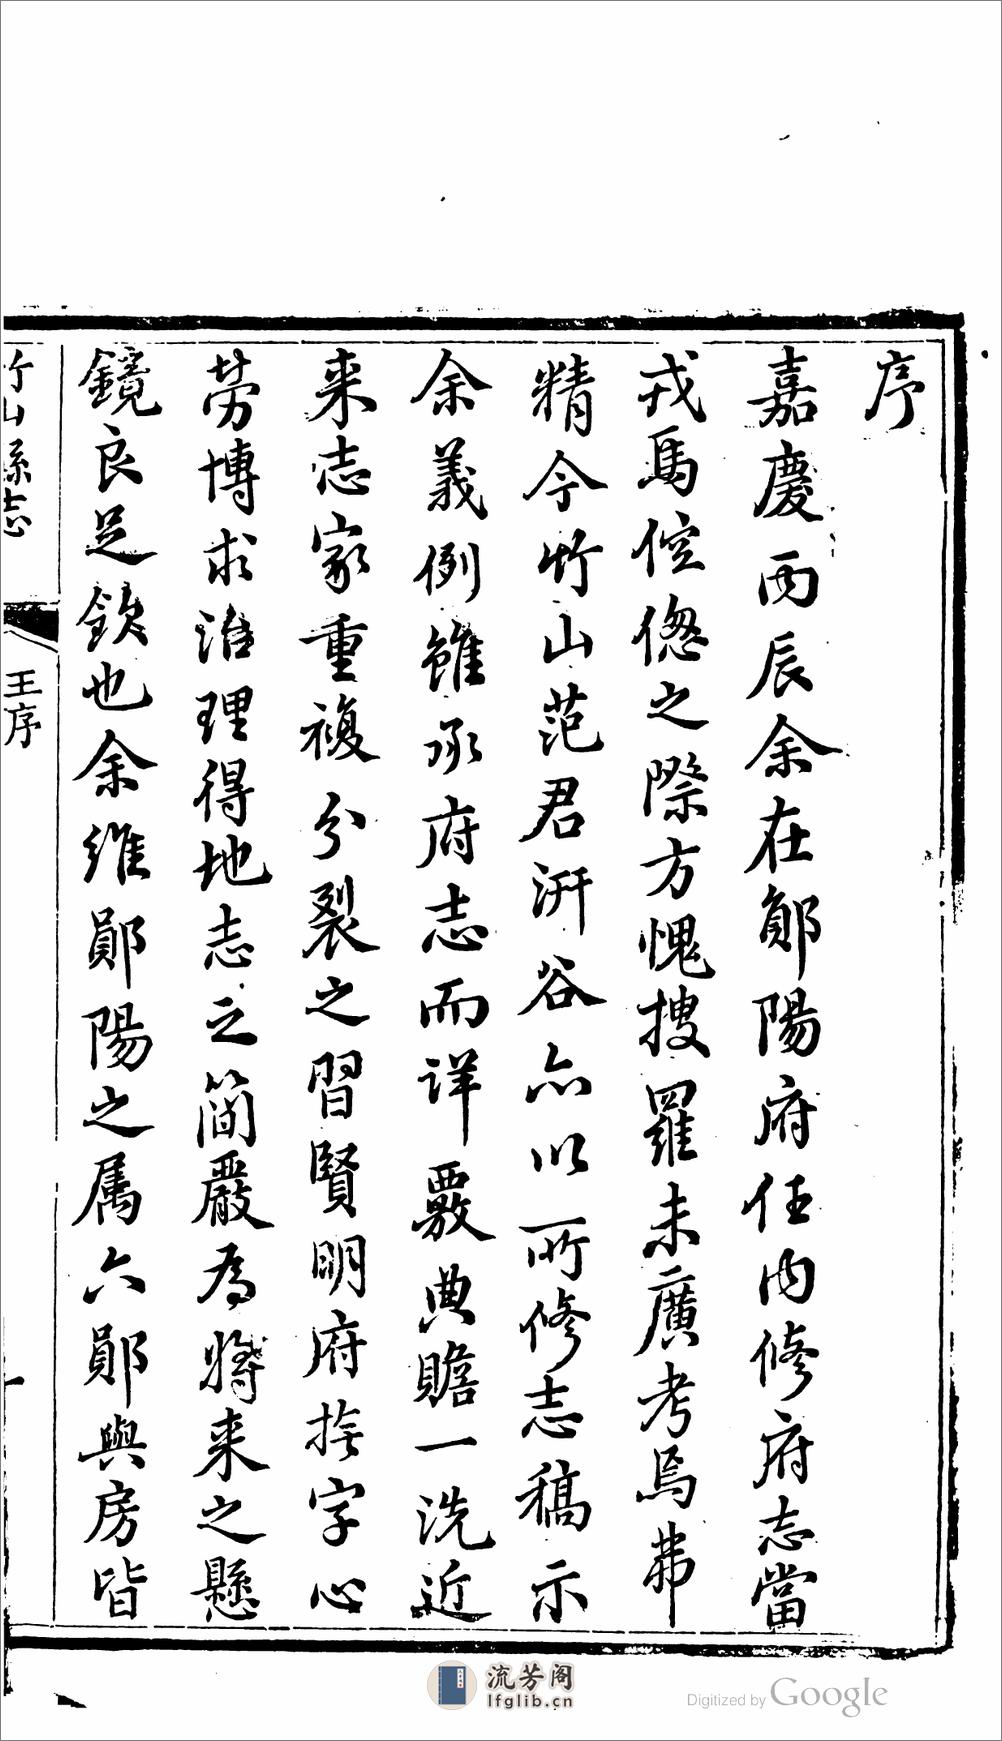 序
嘉慶丙辰余在鄖陽府任内修府志當
戎馬倥偬之際方愧搜羅未廣考焉弗
精今竹山范君汧谷亦以所修志稿示
余義例雖承府志而詳覈典贍一洗近
来志家重複分裂之習賢明府撫字心
勞博求治理得地志之簡嚴為將来之懸
鏡良足欽也余維鄖陽之属六鄖與房皆
竹山縣志
王序
一
流芳阁
lfglib.cn
Digitized by Google